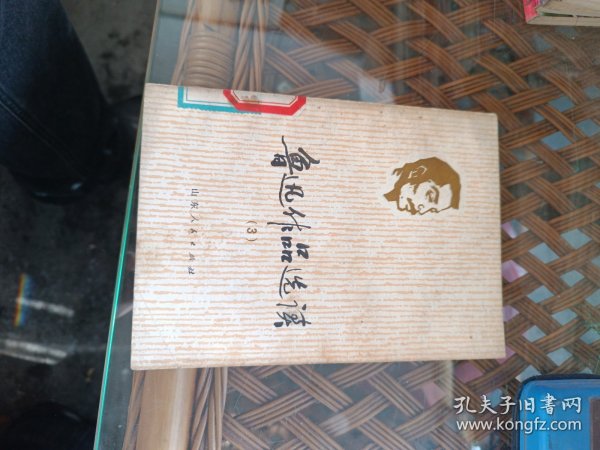 鲁迅作品选读
(3)
山东人民出版社
孔夫子旧书网
www.kongfz.com